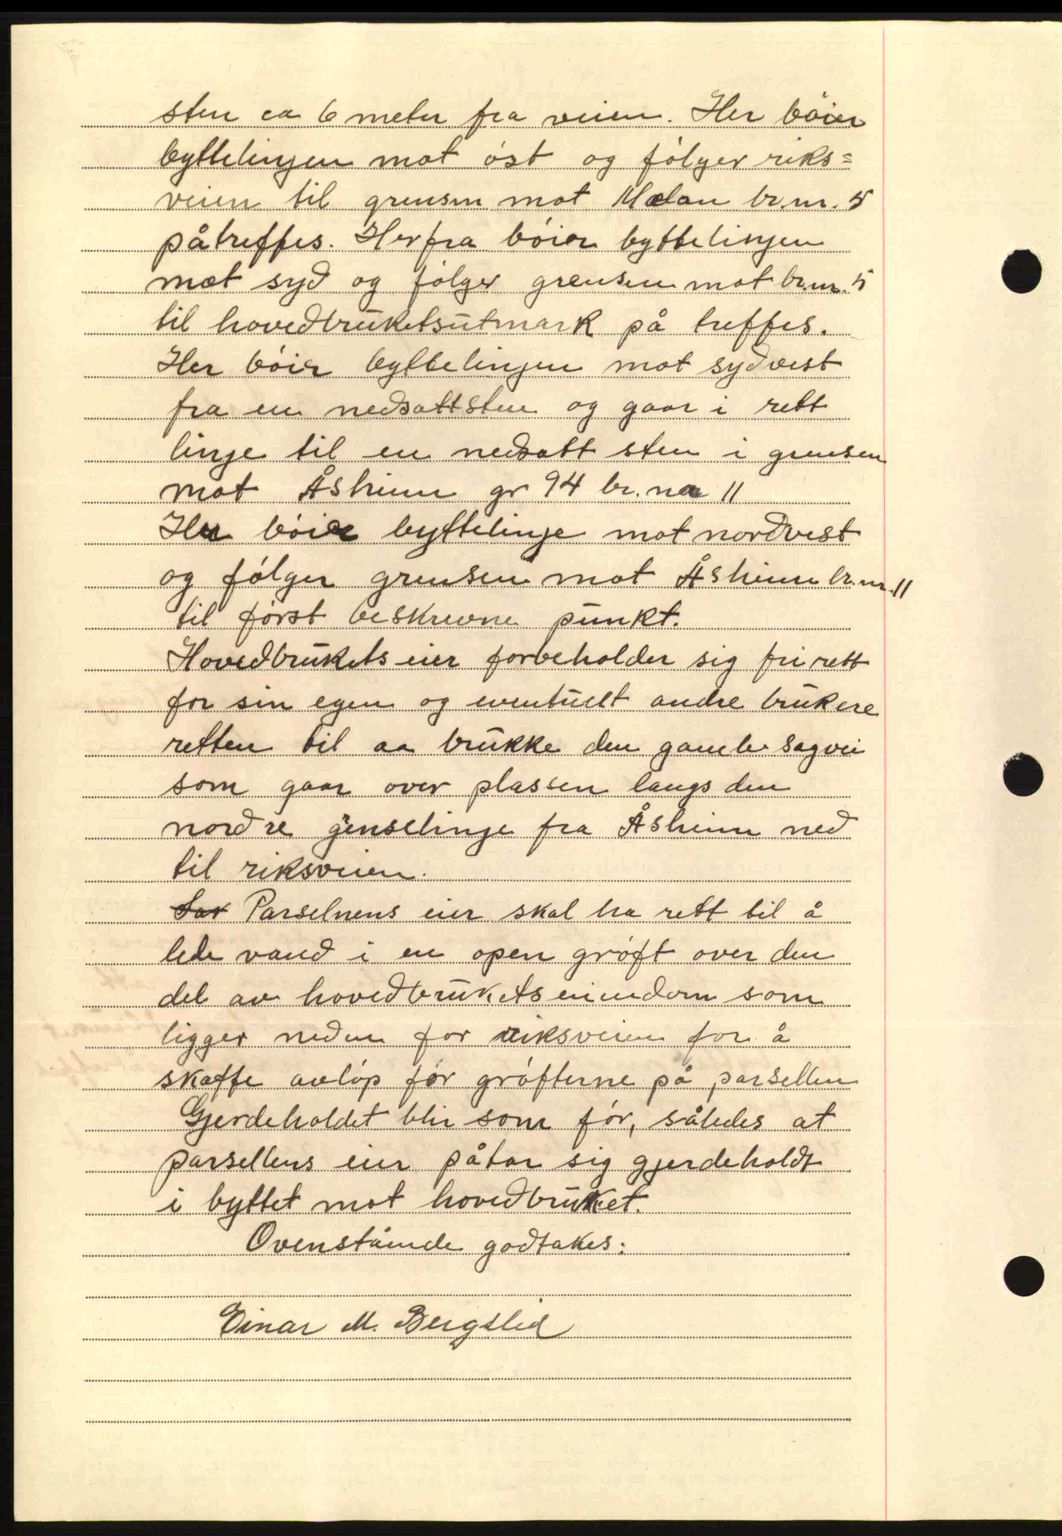 sten ca 6 meter fra veien. Her bøier
byttelinjen mot øst og følger riks=
veien til grensen mot Melan br.nr. 5
påtreffes. Herfra bøier byttelinjen
mot syd og følger grensen mot br.nr. 5
til hovedbruketsutmark på treffes.
Her bøier byttelinjen mot sydvest
fra en nedsattsten og gaar i rett
linje til en nedsatt sten i grensen
mot Åsheim gr 94 br. nr 11
Her bøier byttelinje mot nordvest
og følger grensen mot Åsheim br.nr. 11
til først beskrevne punkt.
Hovedbrukets eier forbeholder sig fri rett
for sin egen og eventuelt andre brukere
retten til aa brukke den gamle sagvei
som gaar over plassen langs den
nordre genselinje fra Åsheim ned
til riksveien.
Parselnens eier skal ha rett til å
lede vand i en open grøft over den
del av hovedbrukets eiendom som
ligger neden for riksveien for å
skaffe avløp før grøfterne på parsellen
Gjerdeholdet blir som før, således at
parsellens eier påtar sig gjerdeholdt
i byttet mot hovedbruket.
Ovenstående godtakes:
Einar M. Bergslid